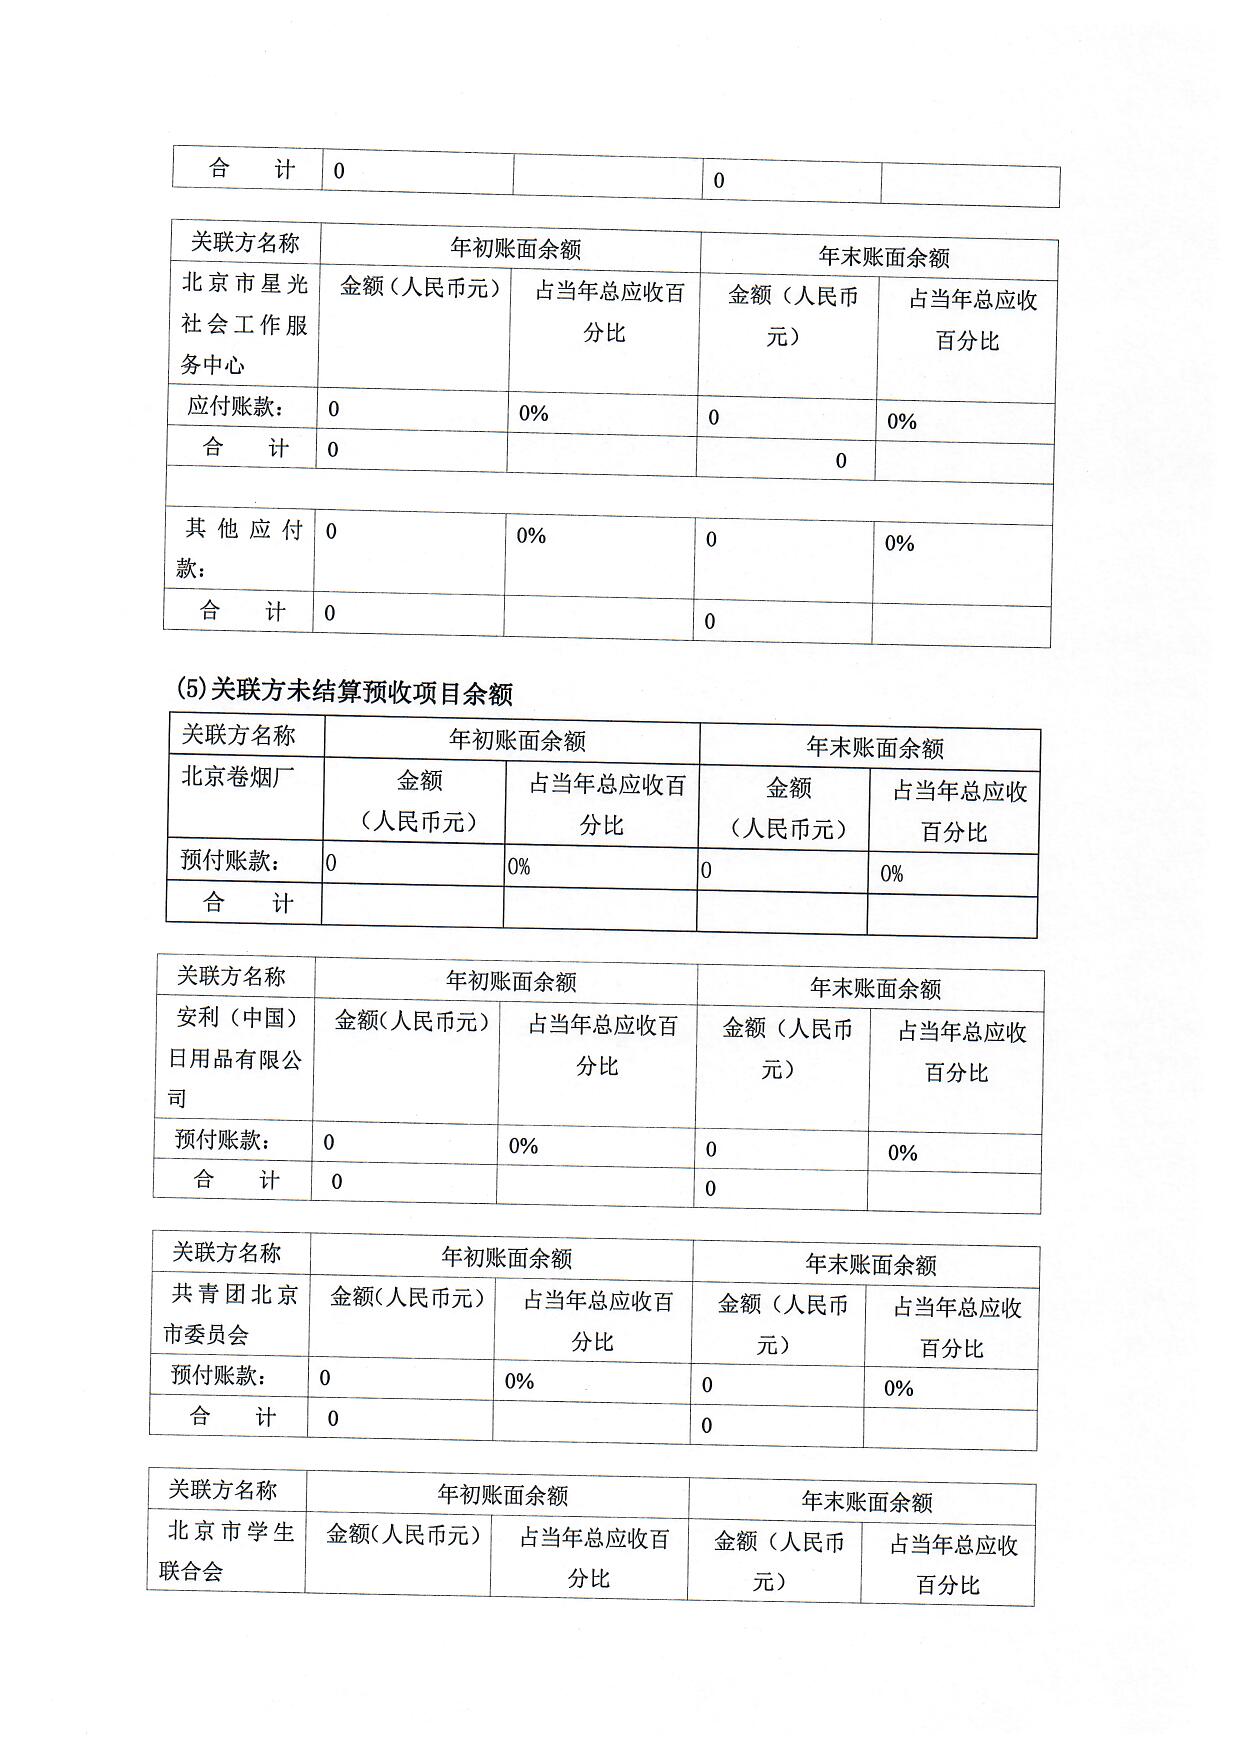 合 计 0 0
关联方名称 年初账面余额 年末账面余额
北京市星光 金额（人民币元） 占当年总应收百 金额（人民币 占当年总应收
社会工作服 分比 元） 百分比
务中心
应付账款： 0 0% 0 0%
合 计 0 0
其他应付 0 0% 0 0%
款：
合 计 0 0
(5)关联方未结算预收项目余额
关联方名称 年初账面余额 年末账面余额
北京卷烟厂 金额 占当年总应收百 金额 占当年总应收
（人民币元） 分比 （人民币元） 百分比
预付账款： 0 0% 0 0%
合 计
关联方名称 年初账面余额 年末账面余额
安利（中国） 金额（人民币元） 占当年总应收百 金额（人民币 占当年总应收
日用品有限公 分比 元） 百分比
司
预付账款： 0 0% 0 0%
合 计 0 0
关联方名称 年初账面余额 年末账面余额
共青团北京 金额（人民币元） 占当年总应收百 金额（人民币 占当年总应收
市委员会 分比 元） 百分比
预付账款： 0 0% 0 0%
合 计 0 0
关联方名称 年初账面余额 年末账面余额
北京市学生 金额（人民币元） 占当年总应收百 金额（人民币 占当年总应收
联合会 分比 元） 百分比